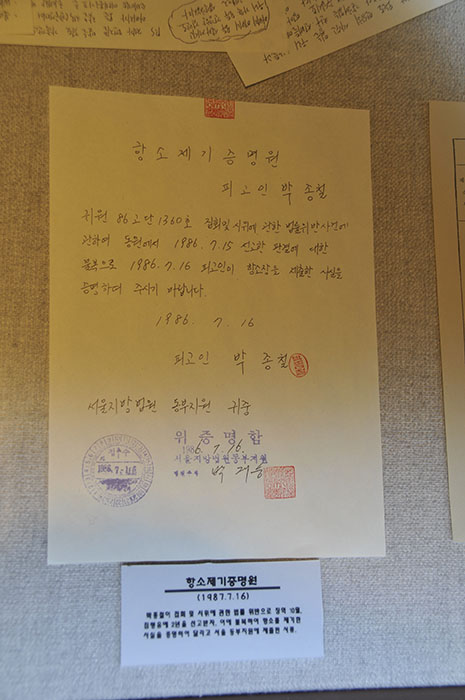 항소제기증명원
피고인 박종철
귀원 86고단1360호 집회및 시위에 관한 법률위반사건에
관하여 동원에서 1986. 7. 15 선고한 판결에 대한
불복으로 1986. 7. 16 피고인이 항소장을 제출한 사실을
증명하여 주시기 바랍니다.
1986. 7. 16
피고인 박종철
서울지방법원 동부지원 귀중
위증명합
1986. 7. 16.
서울지방법원동부지원
항소제기증명원
(1987.7.16)
박종철이 집회 및 시위에 관한 법률 위반으로 징역 10월,
집행유예 2년을 선고받자, 이에 불복하여 항소를 제기한
사실을 증명하여 달라고 서울 동부지원에 제출한 서류.